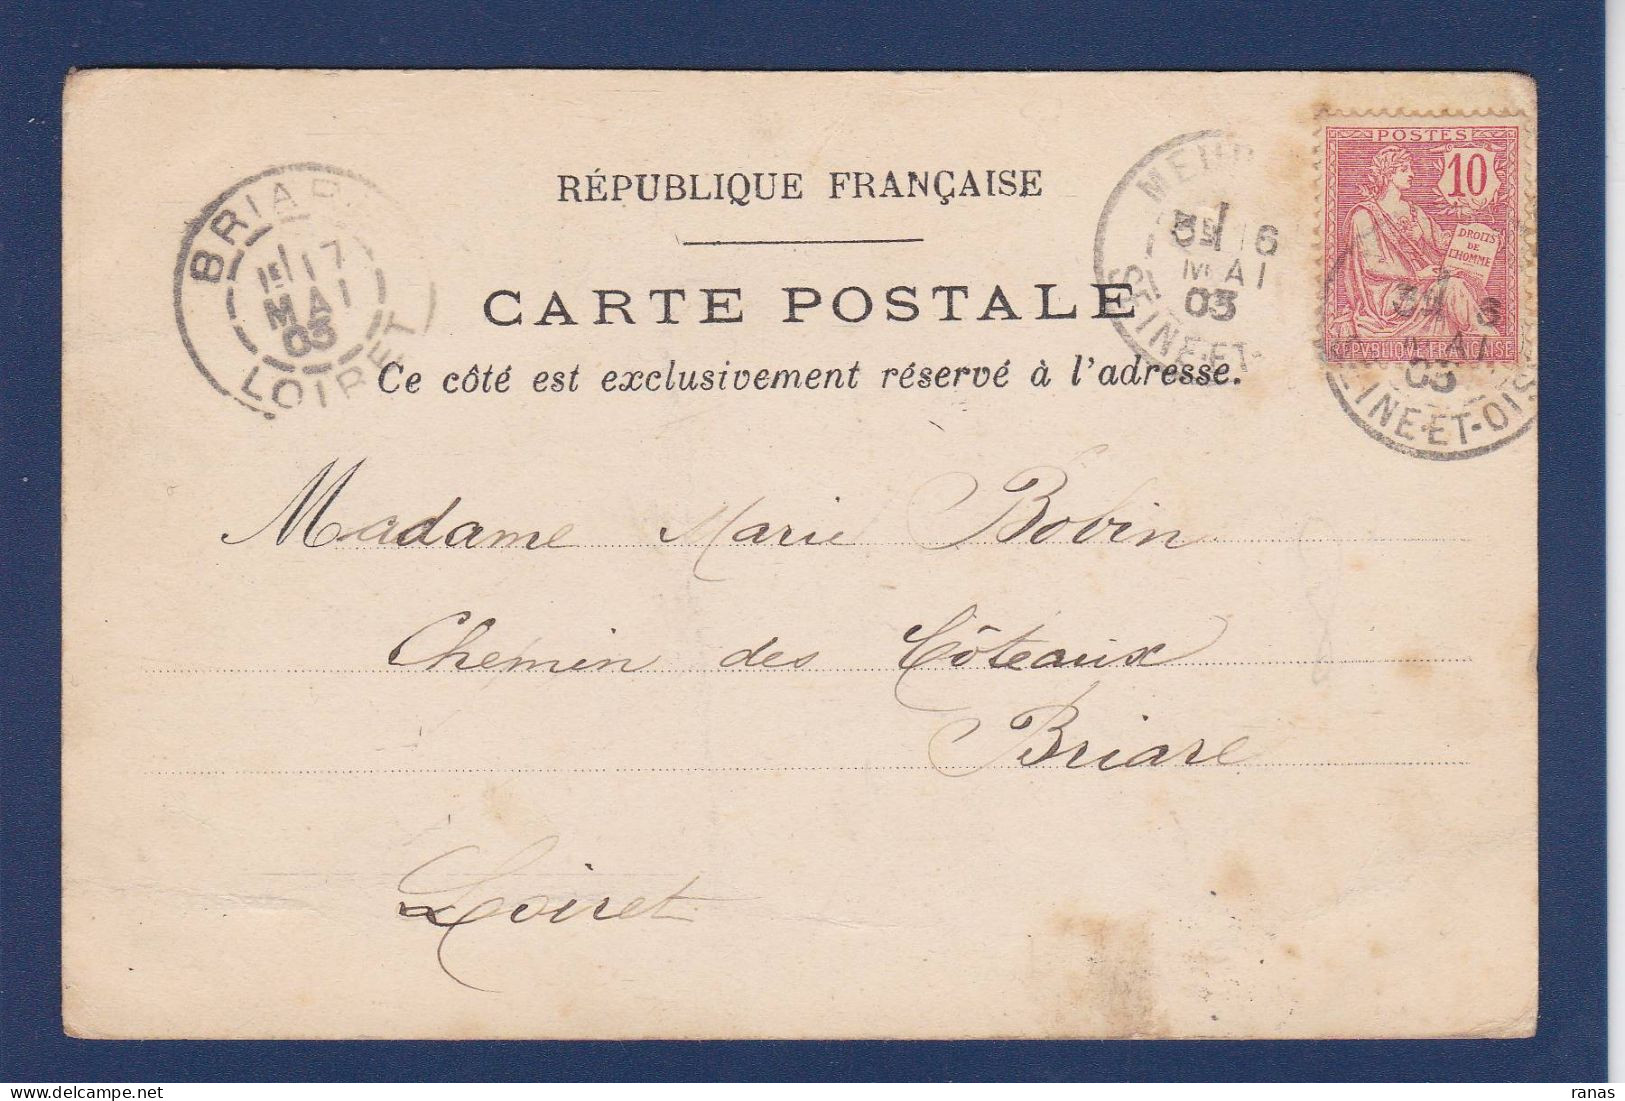 RÉPUBLIQUE FRANÇAISE
CARTE POSTALE
Ce côté est exclusivement réservé à l'adresse.
BRIAR
1E 17
MAI
03
LOIRET
6
MAI
03
SEINE-ET-
POSTES
10
DROITS
DE
L'HOMME
RÉPUBLIQUE FRANÇAISE
6
03
INE-ET-OIS
Madame Marie Bobin
Chemin des Côteaux
Briare
Loiret
ranas